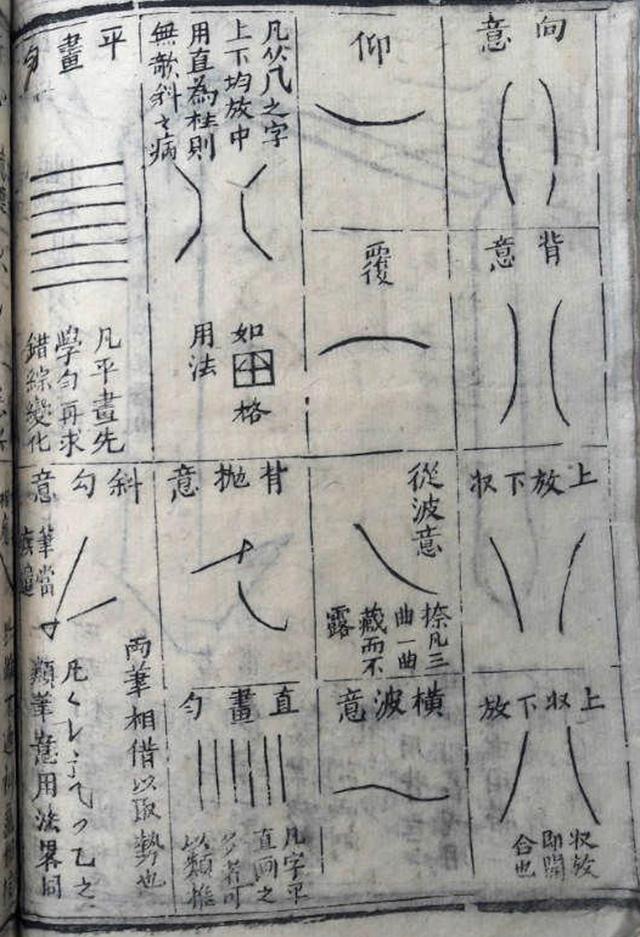 向意
背意
上放下収
上収下放
収放
即開
合也
仰
覆
從波意
捺凡三
曲一曲
藏而不
露
橫波意
凡从几之字
上下均放中
用直為柱則
無欹斜之病
如田格
用法
背抛意
直畫勻
凡字平
直画之
多者可
以類推
平畫勻
凡平畫先
學勻再求
錯綜變化
斜勾意
筆當
兩筆相借以取勢也
類筆意用法畧同